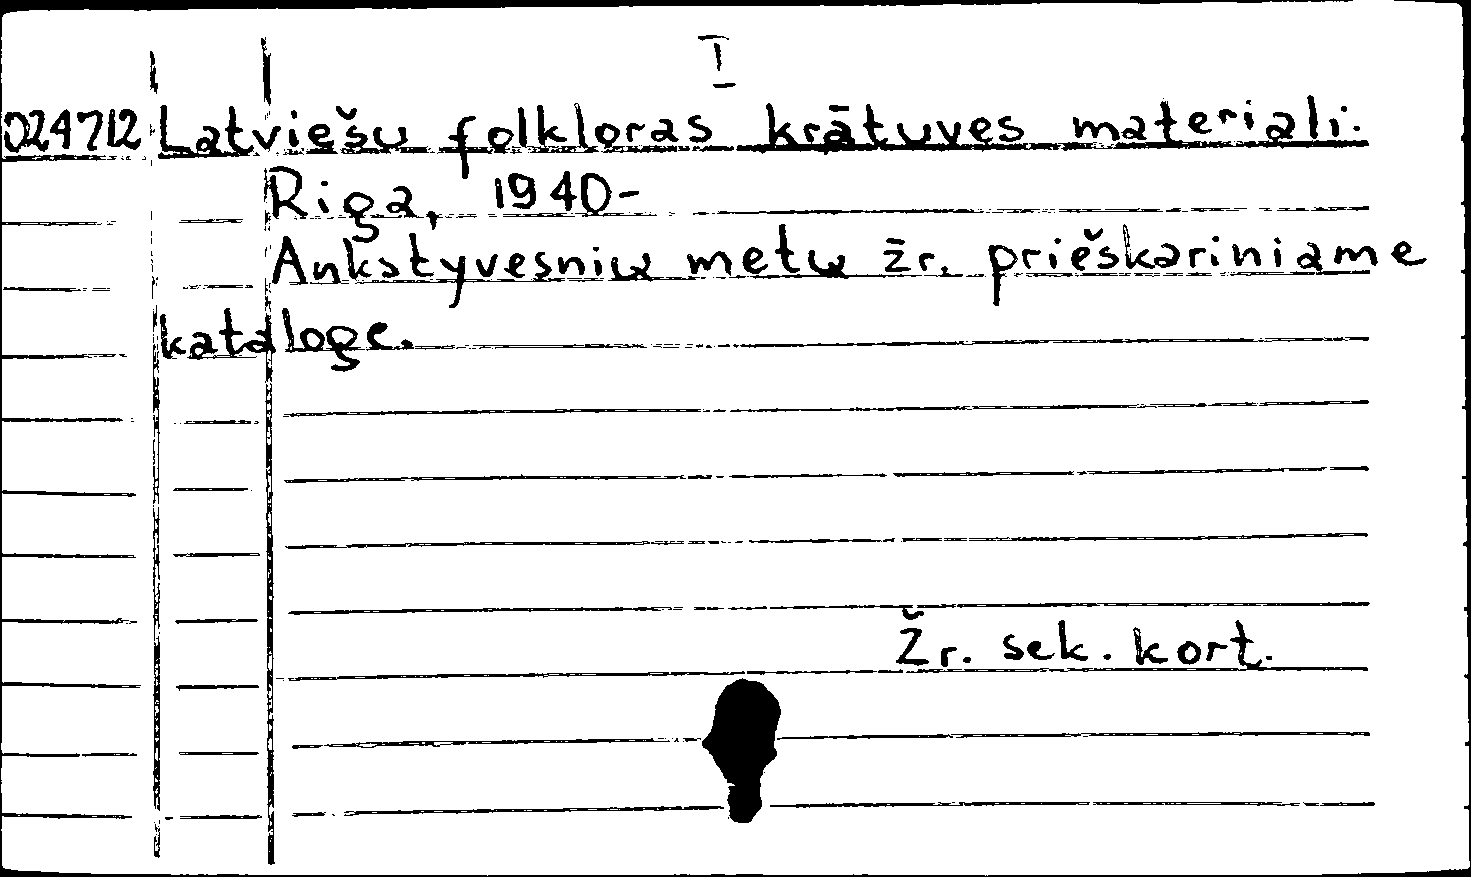 I
024712 Latviešu folkloras krātuves materiali.
Riga, 1940-
Ankstyvesnių metų žr. prieškariniame
kataloge.
Žr. sek. kort.